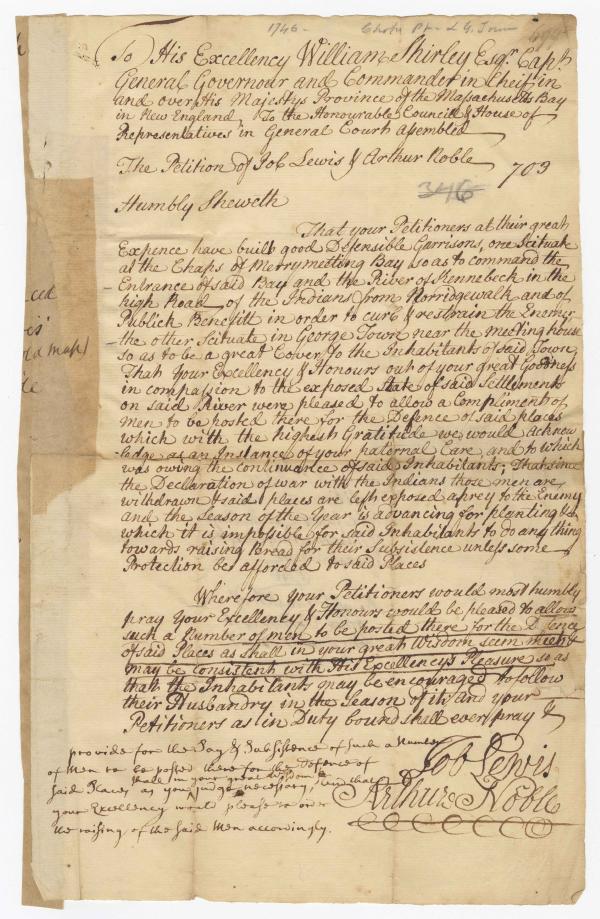 1746 -
To His Excellency William Shirley Esqr. Capn
General Governour and Commander in Cheif in
and over His Majestys Province of the Massachusetts Bay
in New England, To the Honourable Council & House of
Representatives in General Court assembled
The Petition of Job Lewis & Arthur Noble
703
346
Humbly Sheweth
That your Petitioners at their great
Expence have built good Defensible Garrisons, one Scituate
at the Chaps of Merrymeeting Bay so as to command the
Entrance of said Bay and the River of Kennebeck in the
high Road of the Indians from Norridgewalk and of
Publick Benefitt in order to curb & restrain the Enemy
the other Scituate in George Town near the meeting house
so as to be a great Cover to the Inhabitants of said Town
That Your Excellency & Honours out of your great Goodness
in compassion to the exposed State of said Settlements
on said River were pleased to allow a Compliment of
Men to be posted there for the Defence of said places
which with the highest Gratitude we would acknow
-ledge as an Instance of your paternal Care, and to which
was owing the continuance of said Inhabitants; That since
the Declaration of war with the Indians those men are
withdrawn & said places are left exposed a prey to the Enemy
and the Season of the Year is advancing for planting &c
which it is impossible for said Inhabitants to do any thing
towards raising Bread for their Subsistence unless some
Protection bee afforded to said Places
Wherefore your Petitioners would most humbly
pray Your Excellency & Honours would be pleased to allow
such a Number of men to be posted there for the Defence
of said Places as shall in your great Wisdom seem meet &
may be consistent with His Excellency's Pleasure so as
that the Inhabitants may be encouraged to follow
their Husbandry in the Season of it, and your
Petitioners as in Duty bound shall ever pray &
provide for the Pay & Subsistence of such a Number
of Men to be posted there for the Defence of
shall in your great wisdom
said Places as you judge necessary, and that
your Excellency would please to order
the raising of the said Men accordingly.
Job Lewis
Arthur Noble